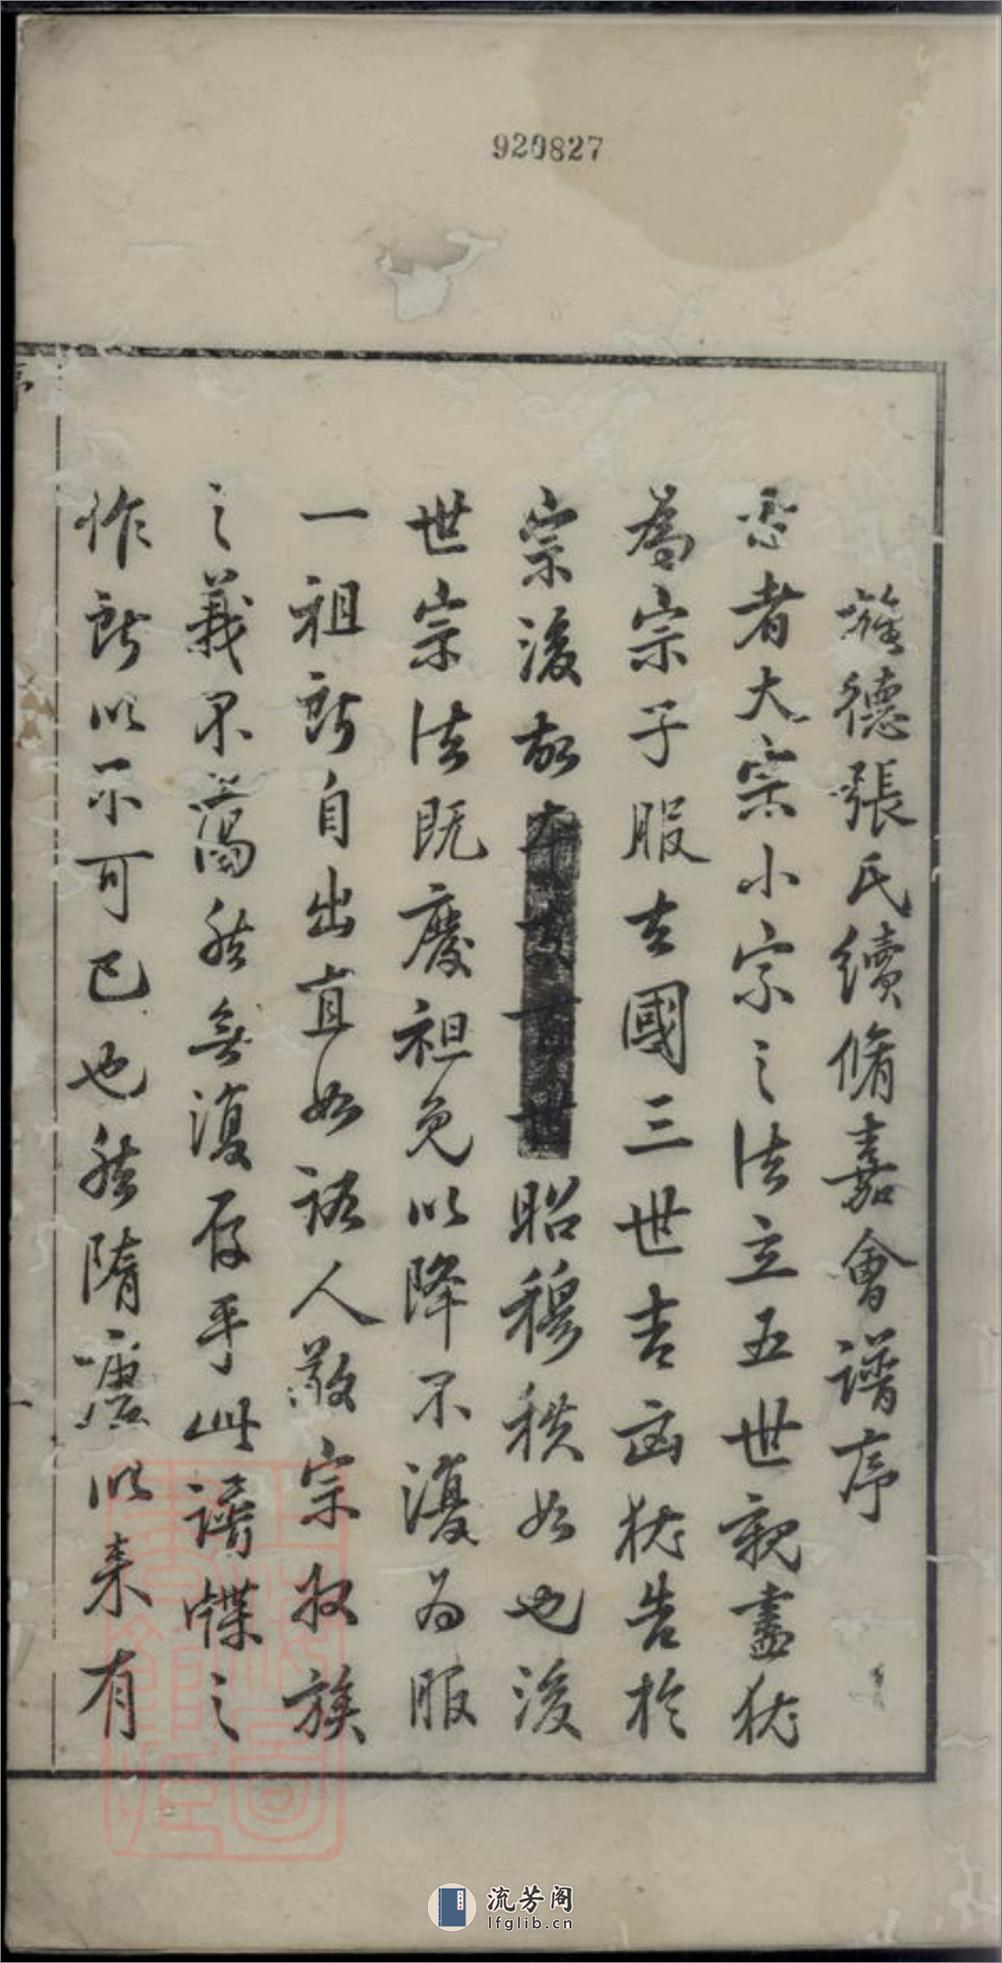 920827
旌德張氏續脩嘉會譜序
古者大宗小宗之法立五世親盡猶
為宗子服去國三世吉凶猶告於
宗後故本支百世昭穆秩如也後
世宗法既廢袒免以降不復为服
一祖所自出直如路人敬宗收族
之義不蕩然無復存乎此譜牒之
作所以不可已也然隋唐以来有
序
一
流芳阁
lfglib.cn